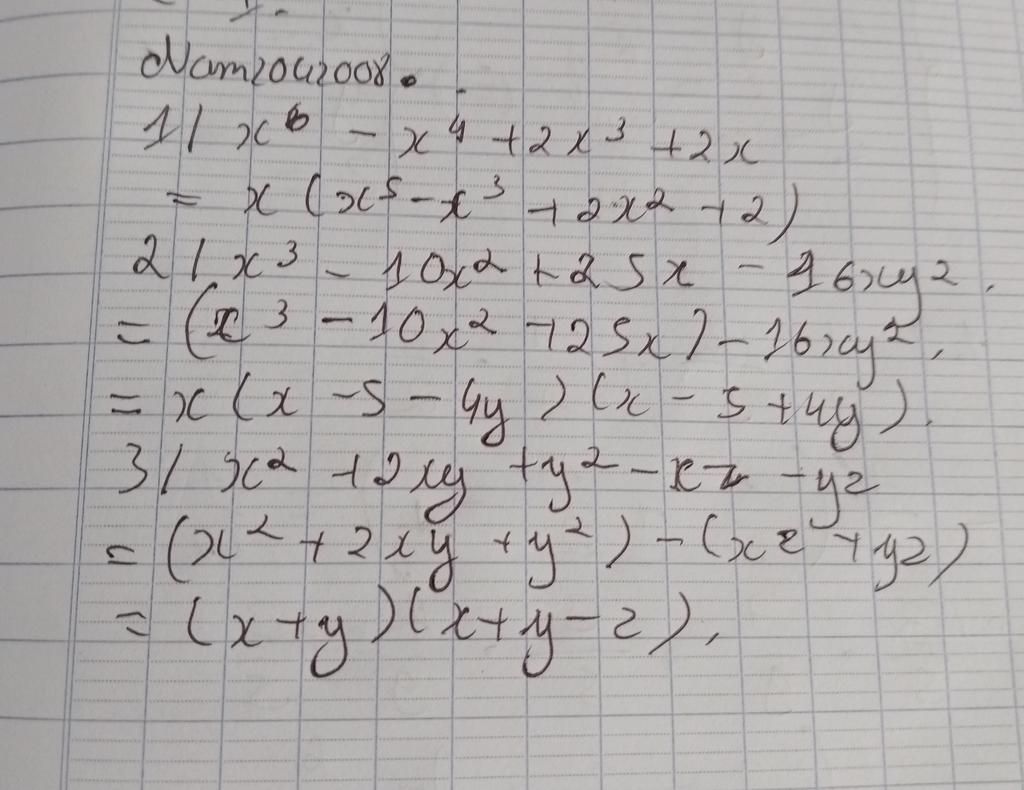 Nam2042008.
1/ x⁶ - x⁴ + 2x³ + 2x
= x (x⁵ - x³ + 2x² + 2)
2/ x³ - 10x² + 25x - 16xy².
= (x³ - 10x² + 25x) - 16xy².
= x (x - 5 - 4y) (x - 5 + 4y).
3/ x² + 2xy + y² - xz - yz
= (x² + 2xy + y²) - (xz + yz)
= (x + y) (x + y - z).